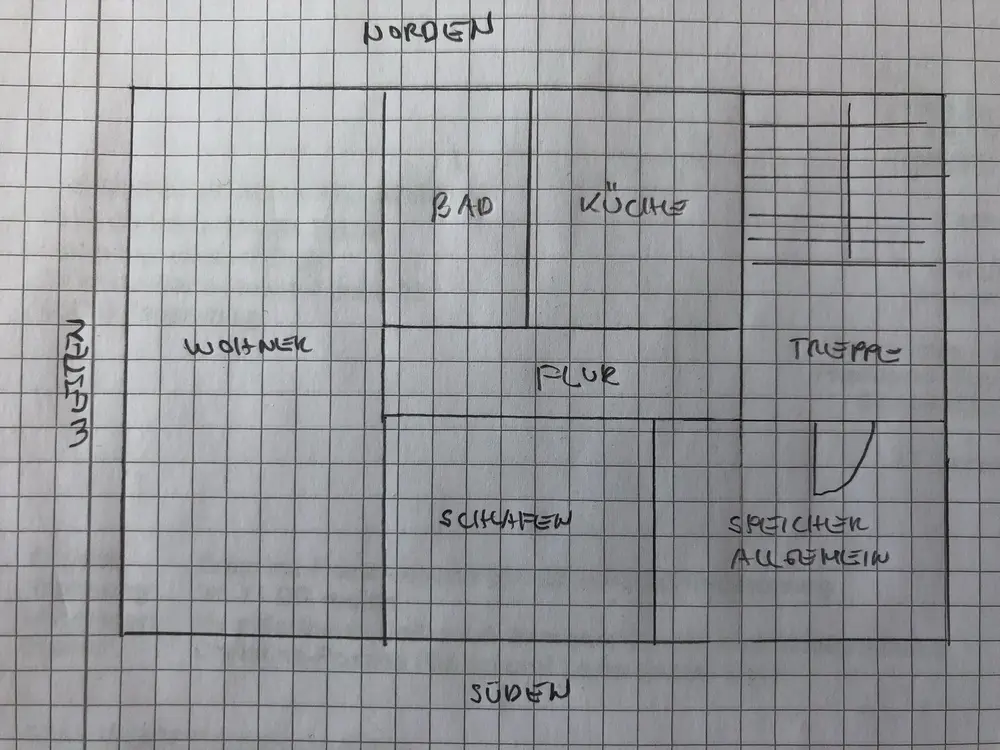 NORDEN
BAD
KÜCHE
WESTEN
WOHNEN
FLUR
TREPPE
SCHLAFEN
SPEICHER
ALLGEMEIN
SÜDEN